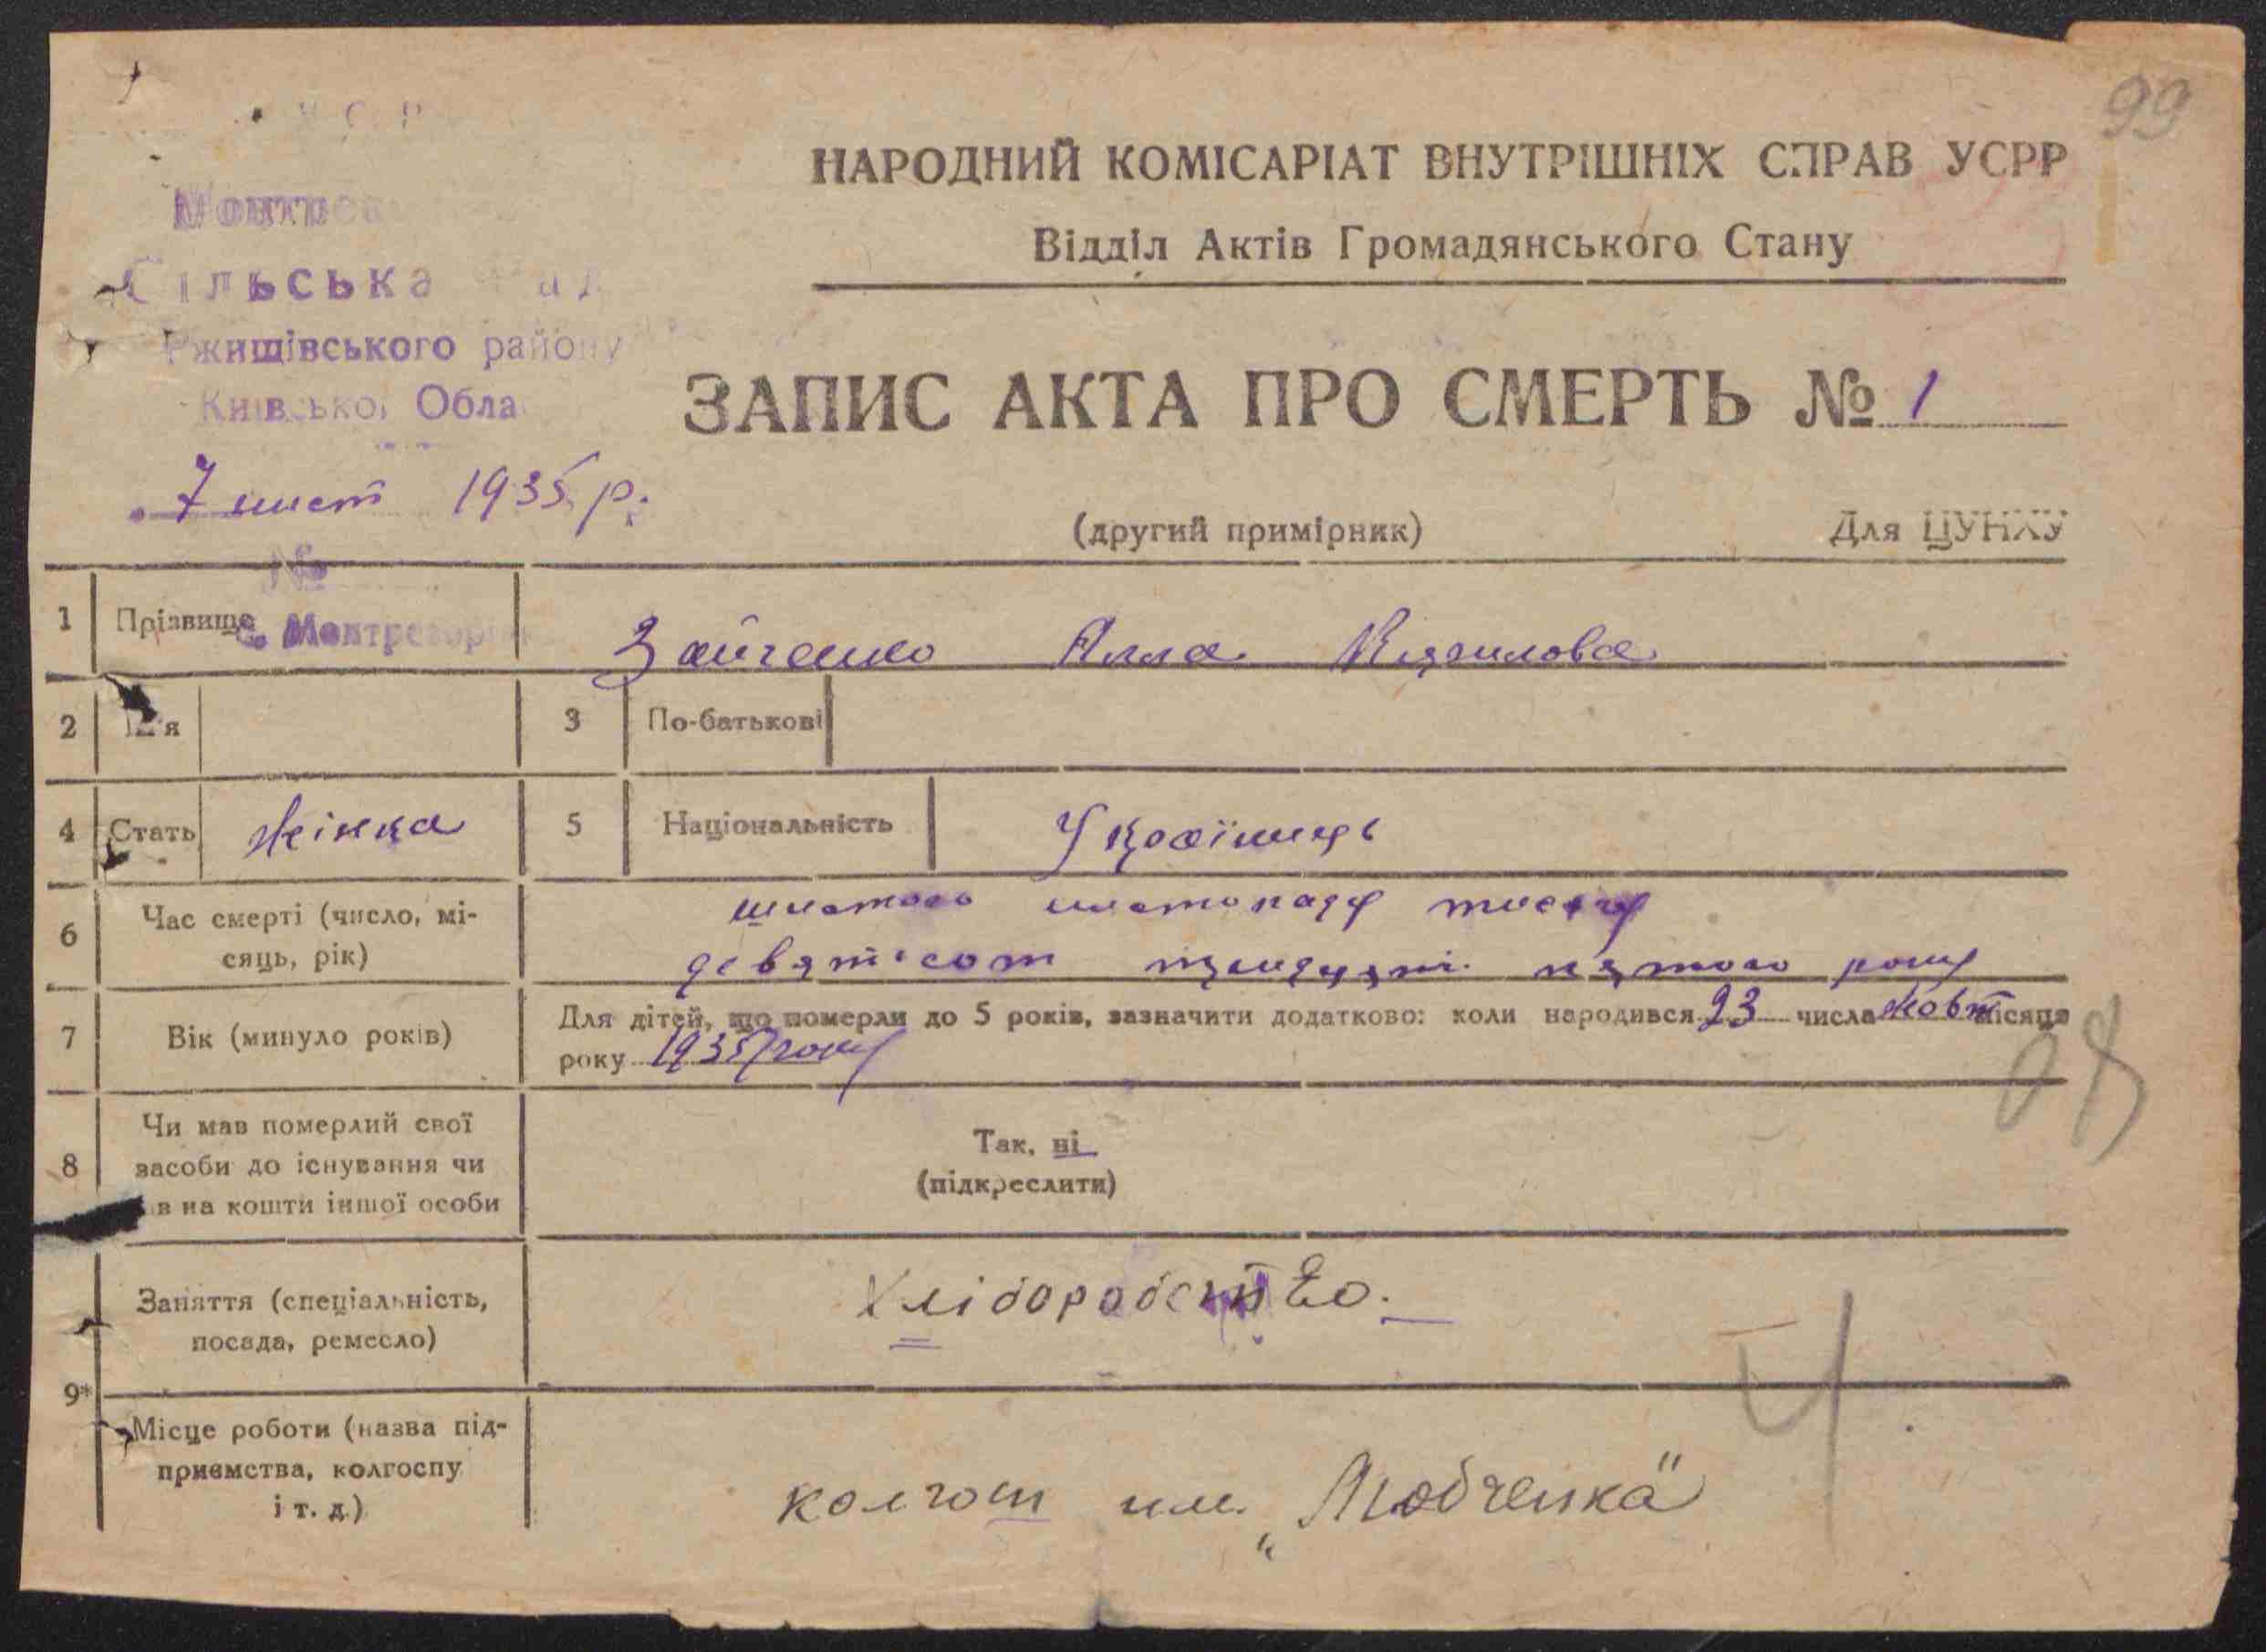 99
УСРР
НАРОДНИЙ КОМІСАРІАТ ВНУТРІШНІХ СПРАВ УСРР
Відділ Актів Громадянського Стану
Сільська Рада
Ржищівського району
Київської Обла
ЗАПИС АКТА ПРО СМЕРТЬ № 1
7 лист 1935 р.
(другий примірник)
Для ЦУНХУ
№
1 Прізвище Зайченко Алла
с. Монтрезор
2 Ім'я
3 По-батькові
4 Стать жінка
5 Національність Українець
6 Час смерті (число, місяць, рік) шостого листопаду тисячу
девятсот тридцять пятого року
7 Вік (минуло років) Для дітей, що померли до 5 років, зазначити додатково: коли народився 23 числа жовт місяця
року 1935 року
8 Чи мав померлий свої
засоби до існування чи
в на кошти іншої особи
Так, ні
(підкреслити)
9*
Заняття (спеціальність,
посада, ремесло)
Хліборобство.
Місце роботи (назва під-
приємства, колгоспу
і т. д.)
колгосп им. „Любченка"